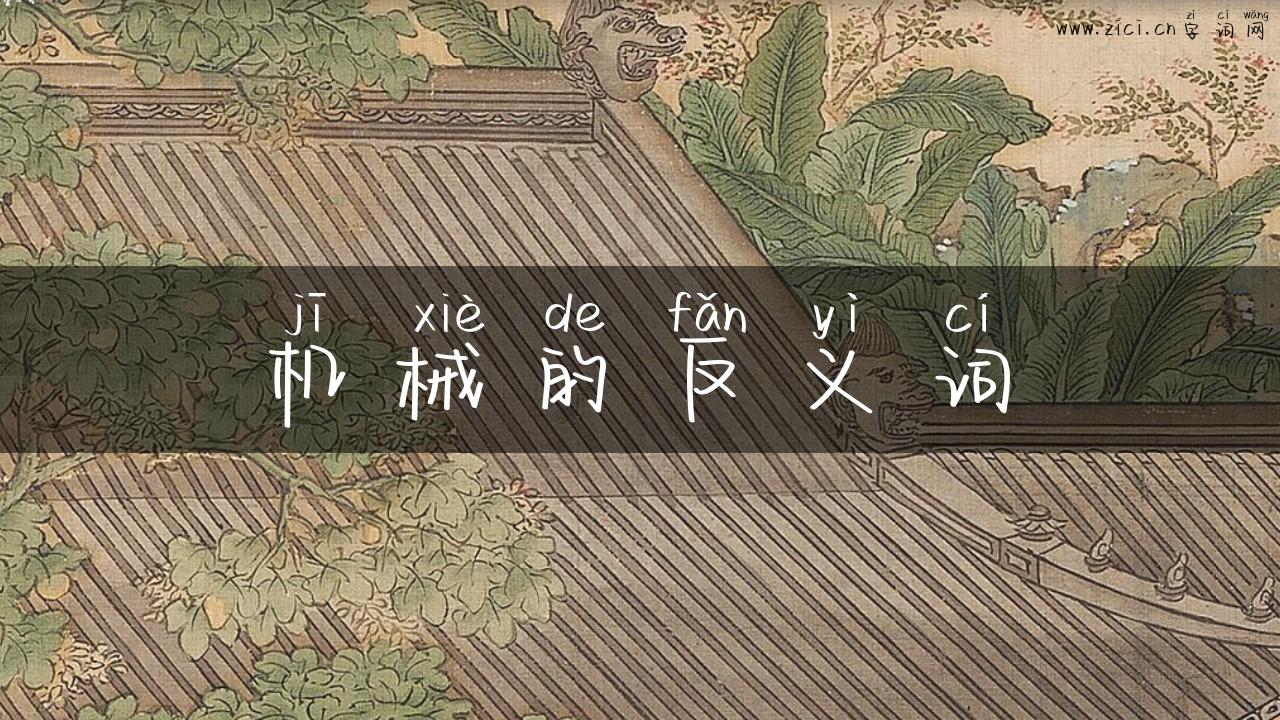 zì cí wǎng
www.zici.cn 字 词 网
jī xiè de fǎn yì cí
机 械 的 反 义 词